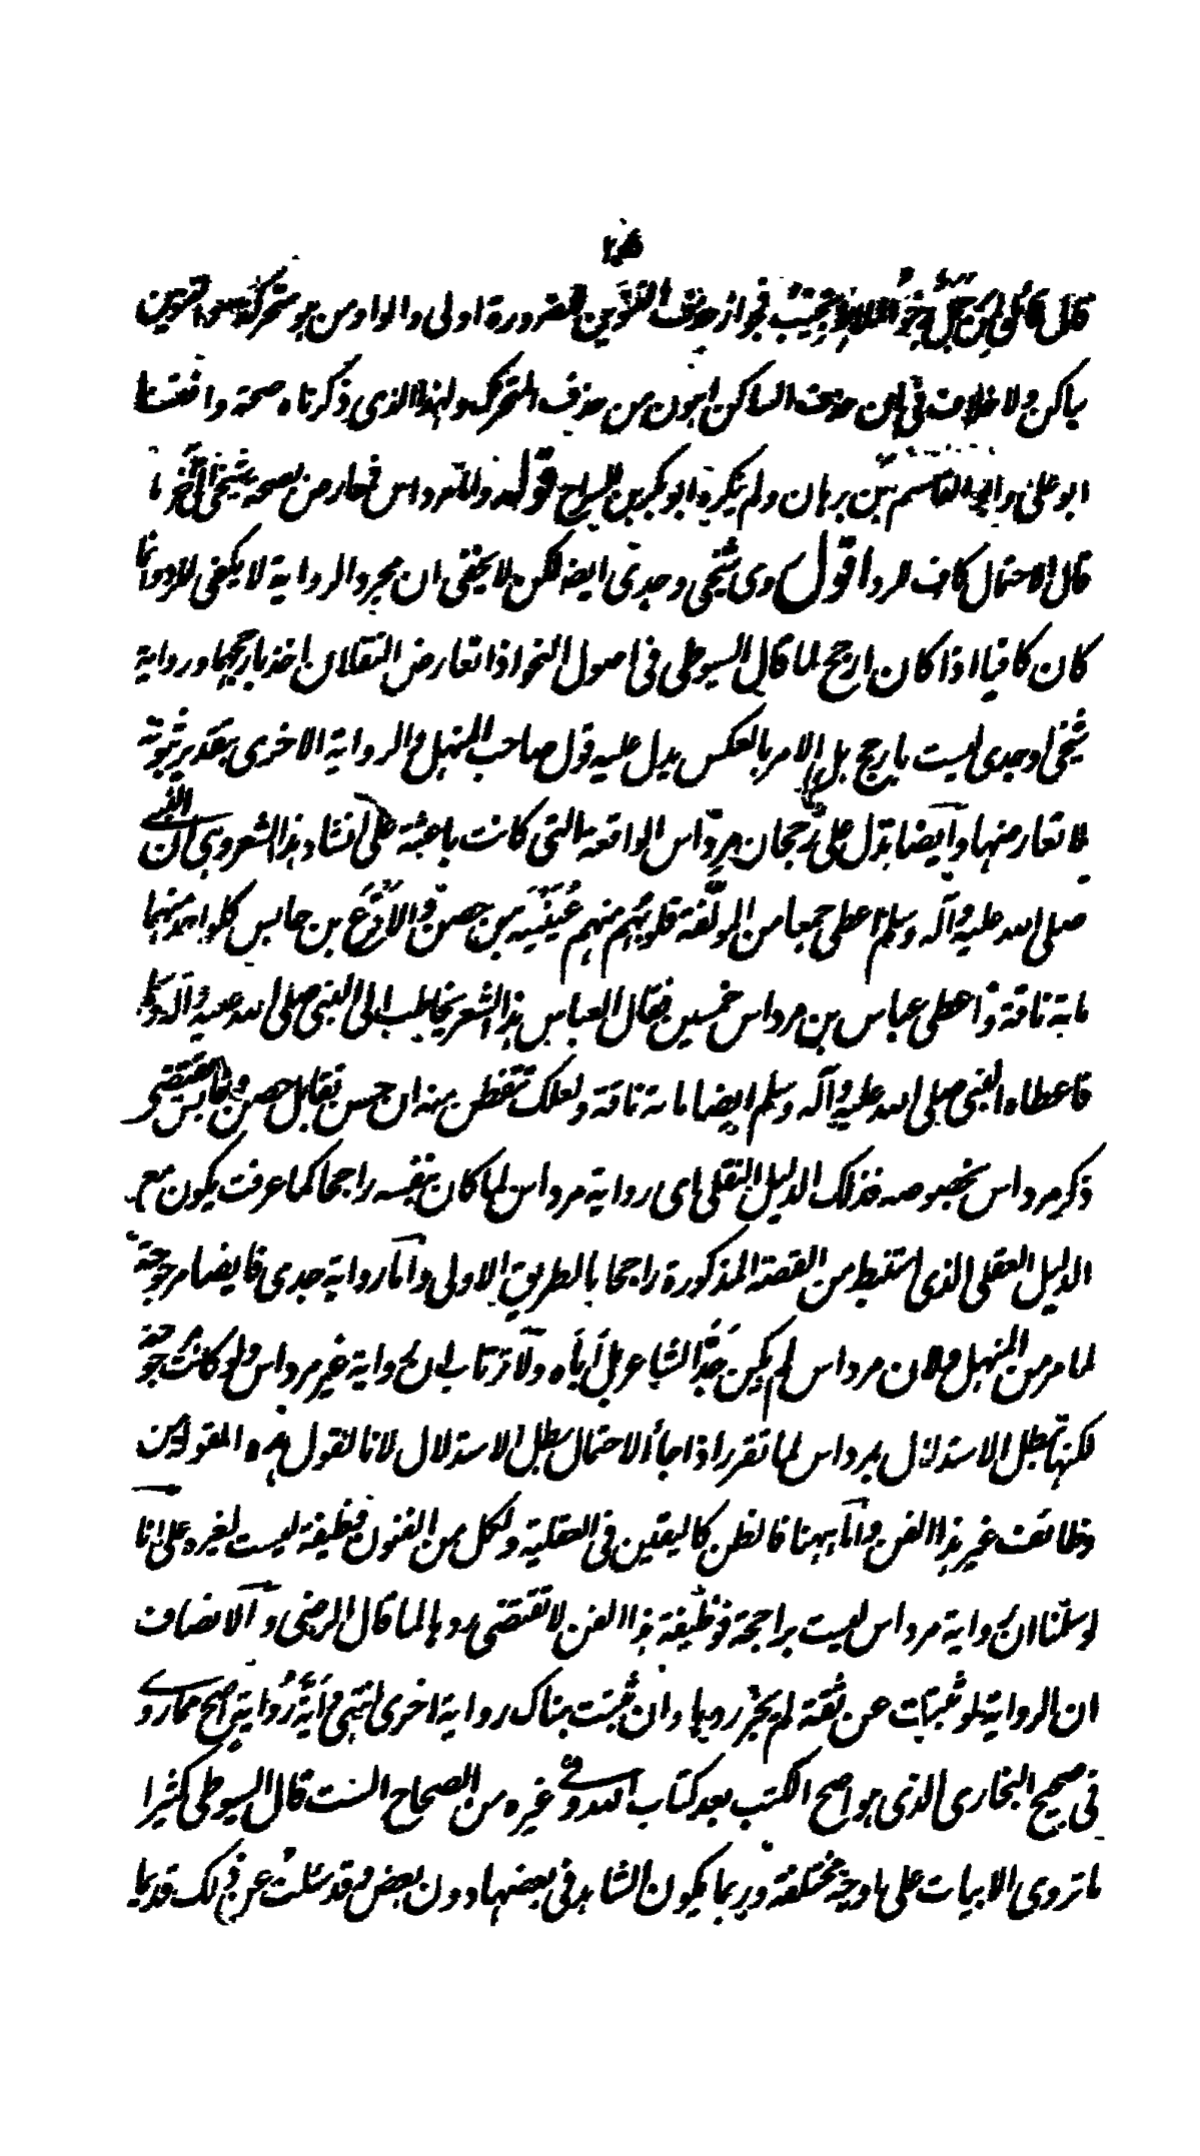 قال قائل لمن جمل رخو الملاط نجيب فجواز حذف التنوين للضرورة اولى والواو من هو متحركة والتنوين
ساكن ولا خلاف فى ان حذف الساكن اهون من حذف المتحرك ولهذا الذى ذكرناه صحة وافقنا
ابو على وابو القاسم بن برهان ولم ينكره ابو بكر بن السراج قوله والمرداس فعارض بصحة شيخى الخ ما
قال الاحتمال كاف للرد اقول روى شيخى وجدى ايضا لكن لا يخفى ان مجرد الرواية لا يكفى للرد وانما
كان كافيا اذا كان ارجح لما قال السيوطى فى اصول النحو اذا تعارض النقلان اخذ بارجحهما ورواية
شيخى وجدى ليست بارجح بل الامر بالعكس يدل عليه قول صاحب المنهل والرواية الاخرى بتقدير ثبوته
لا تعارضها وايضا تدل على رجحان مرداس الواقعة التى كانت باعثة على انشاد هذا الشعر وهى ان النبى
صلى الله عليه وآله وسلم اعطى جمعا من المولفة قلوبهم منهم عيينة بن حصن والاقرع بن حابس كلواحد منهما
ماية ناقة واعطى عباس بن مرداس خمسين فقال العباس هذا الشعر يخاطب الى النبى صلى الله عليه وآله وسلم
فاعطاه النبى صلى الله عليه وآله وسلم ايضا ماىة ناقة ولعلك تتفطن منه ان حسن تقابل حصن وحابس يقتضى
ذكر مرداس بخصوصه فذلك الدليل النقلى اى رواية مرداس لما كان بنفسه راجحا كما عرفت يكون مع
الدليل العقلى الذى استنبط من القصة المذكورة راجحا بالطريق الاولى واما رواية جدى فايضا مرجوحة
لما مر من المنهل ولان مرداس لم يكن جد الشاعر بل اباه ولا ترتاب فى ان رواية غير مرداس ولو كانت مرجوحة
لكنها تبطل الاستدلال بمرداس لما تقرر اذا جاء الاحتمال بطل الاستدلال لانا نقول هذه المقولة من
وظائف غير هذا الفن واما ههنا فالظن كاليقين فى العقلية ولكل من الفنون وظيفة ليست لغيره على انا
لو سلمنا ان رواية مرداس ليست براجحة فوظيفة هذا الفن لا تقتضى ردها لما قال الرضى والانصاف
ان الرواية لو ثبتت عن ثقة لم يجز ردها وان ثبتت هناك رواية اخرى انتهى واية رواية اصح مما روى
فى صحيح البخارى الذى هو اصح الكتب بعد كتاب الله وفى غيره من الصحاح الست قال السيوطى كثيرا
ما تروى الابيات على اوجه مختلفة وربما يكون الشاهد فى بعضها دون بعض وقد سئلت عن ذلك قديما